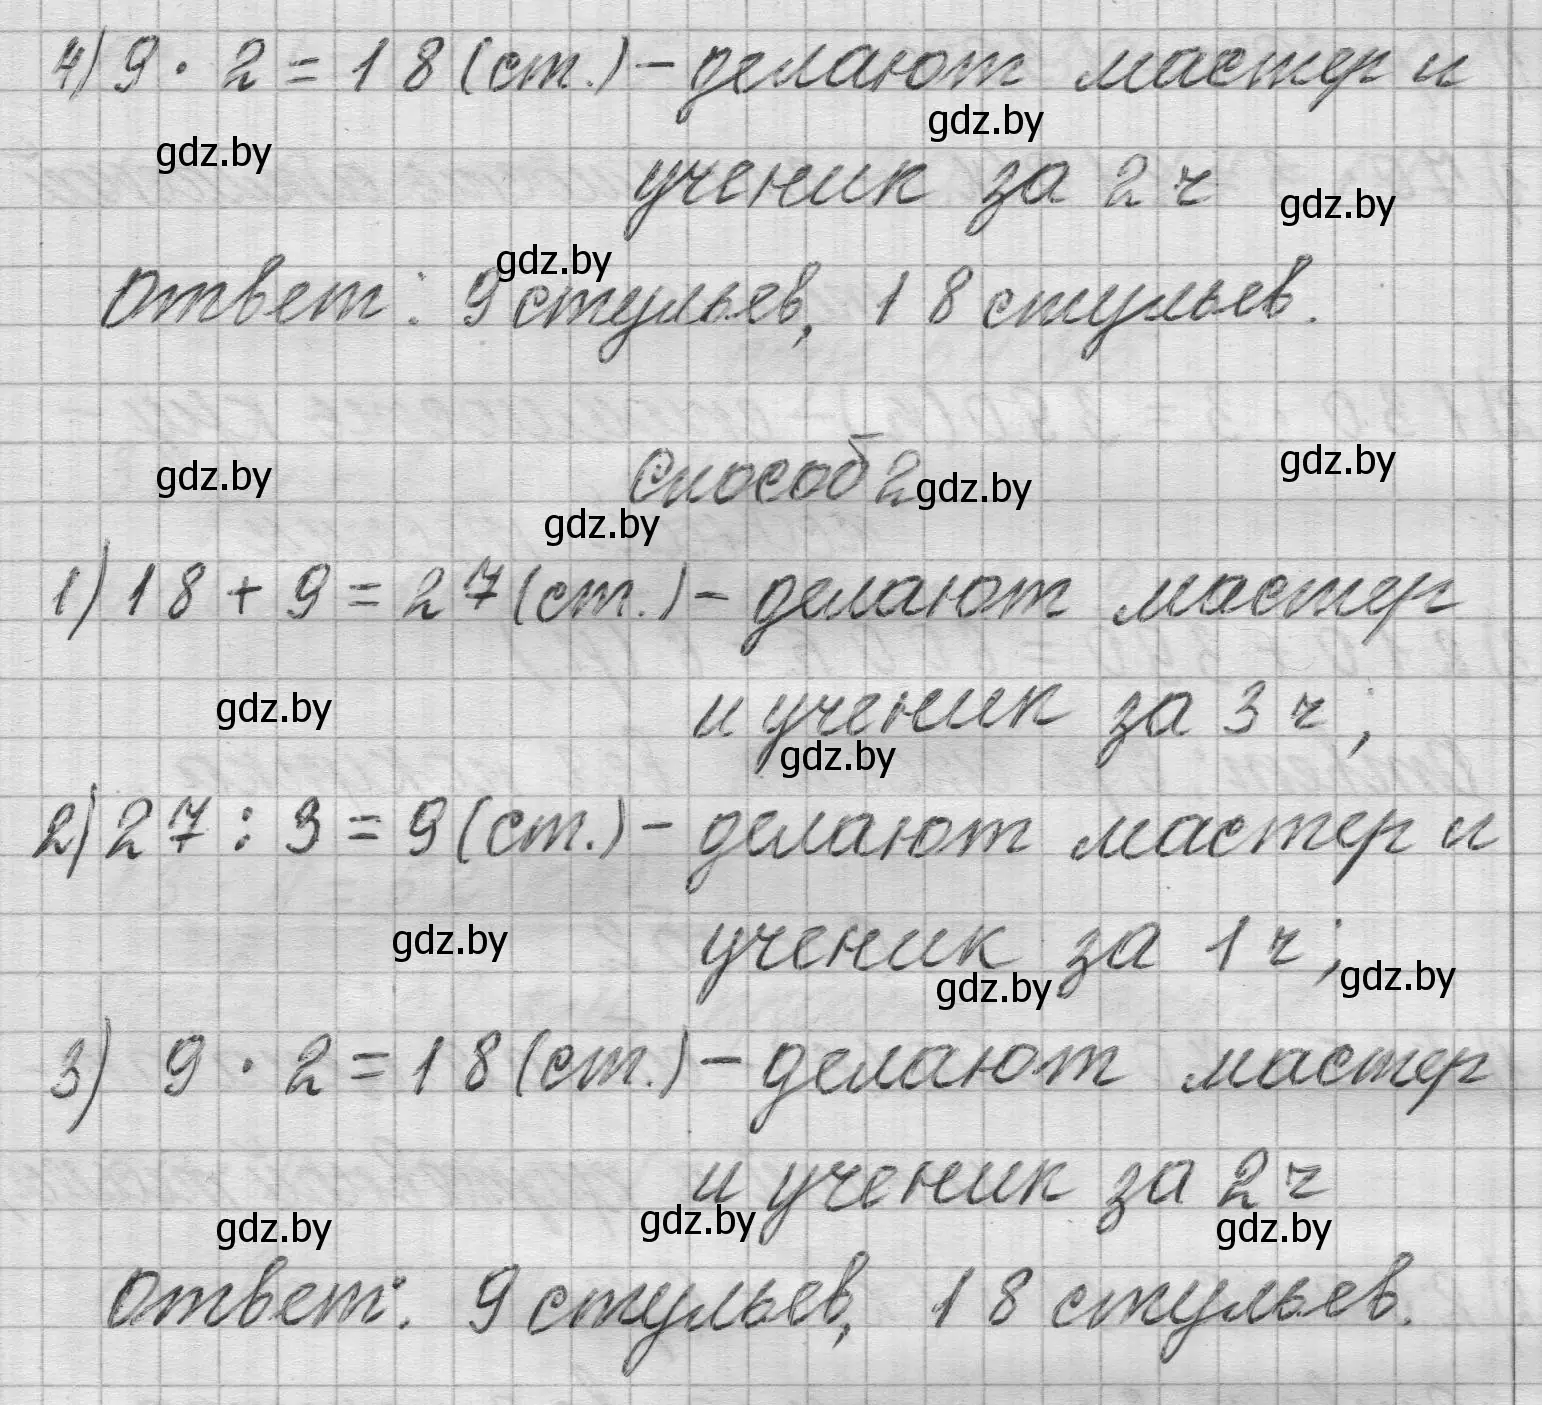 4) 9 · 2 = 18 (ст.) – делают мастер и
gdz.by
gdz.by
ученик за 2 ч
gdz.by
gdz.by
Ответ: 9 стульев, 18 стульев.
gdz.by
gdz.by
Способ 2
gdz.by
gdz.by
1) 18 + 9 = 27 (ст.) – делают мастер
gdz.by
и ученик за 3 ч;
gdz.by
2) 27 : 3 = 9 (ст.) – делают мастер и
gdz.by
ученик за 1 ч;
gdz.by
gdz.by
3) 9 · 2 = 18 (ст.) – делают мастер
и ученик за 2 ч
gdz.by
gdz.by
gdz.by
Ответ: 9 стульев, 18 стульев.